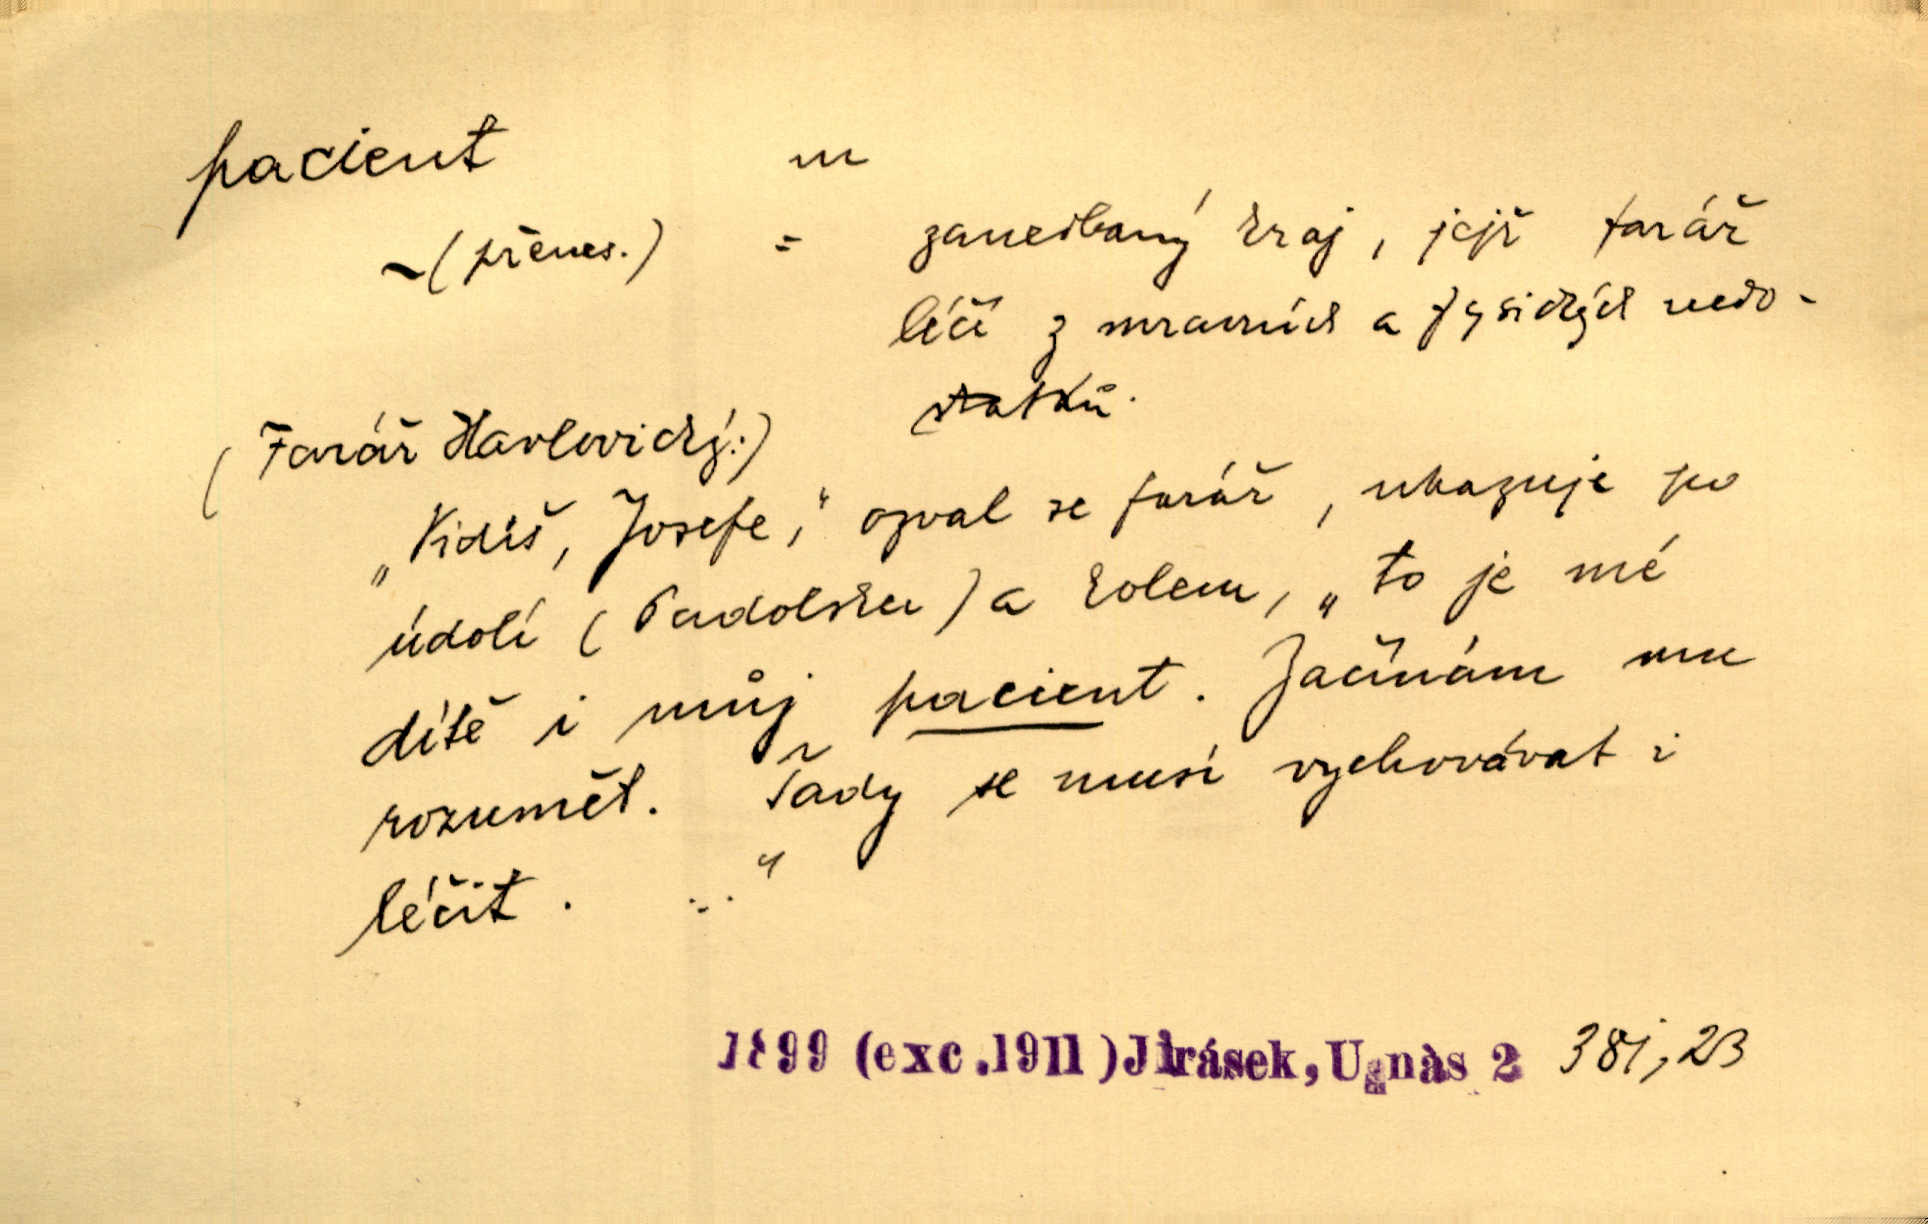 pacient m
~(přenes.) = zanedbaný kraj, jejž farář
léčí z mravních a fysických nedo-
statků.
(Farář Havlovický:)
„Vidíš, Josefe,“ ozval se farář, ukazuje po
údolí (Padolsku) a kolem, „to je mé
dítě i můj pacient. Začínám mu
rozumět. Tady se musí vychovávat i
léčit. ...“
1899 (exc.1911) Jirásek, U nàs 2 381,23